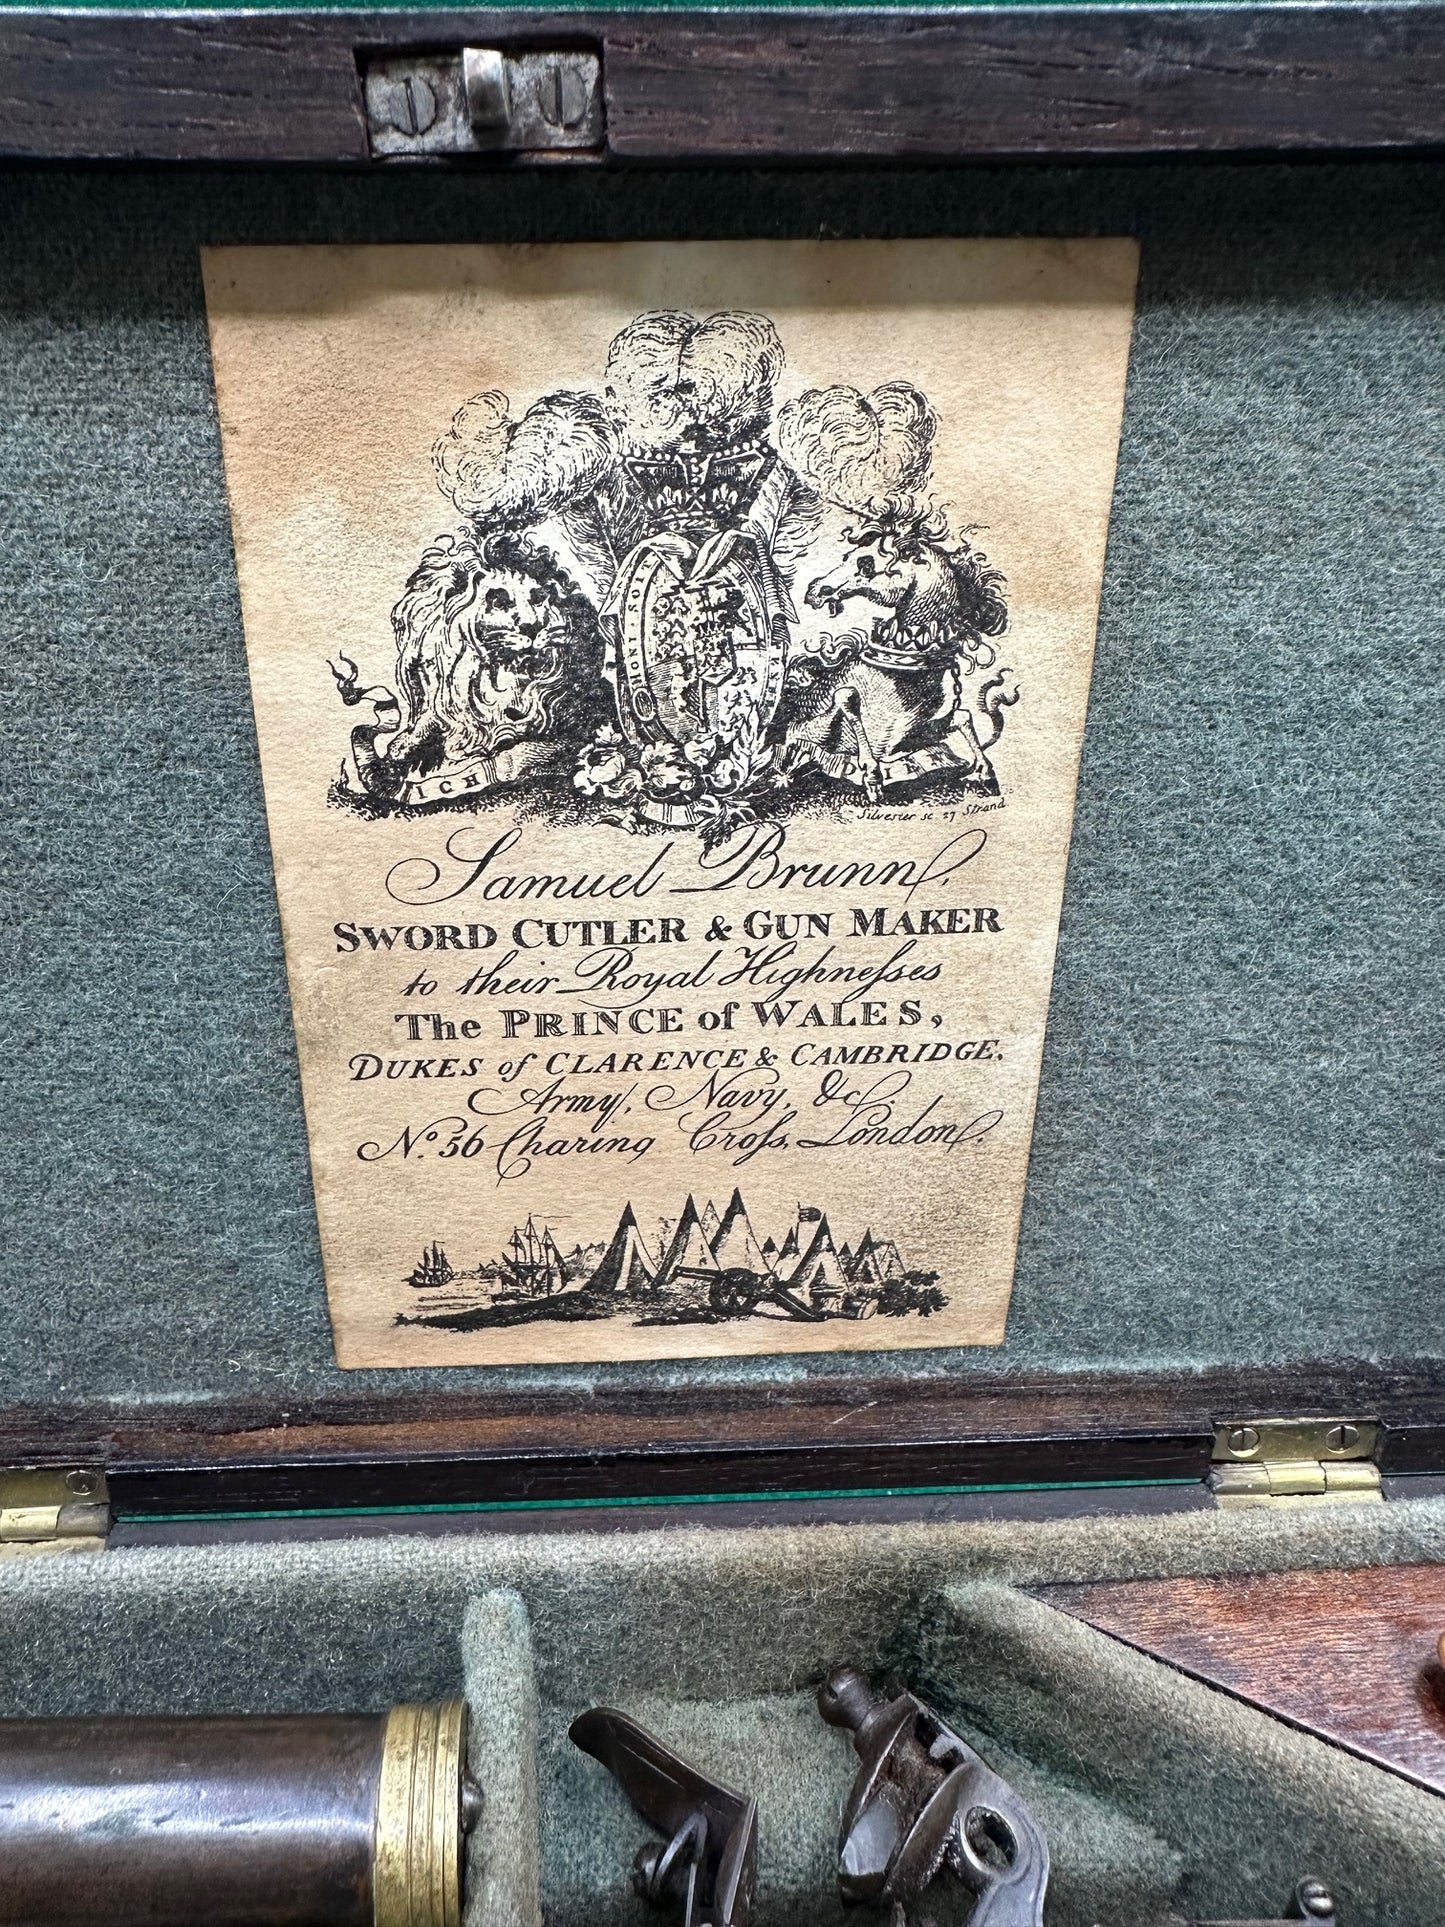 HONI SOIT
ICH DIEN
Silvester sc. 27 Strand
Samuel Brunn,
SWORD CUTLER & GUN MAKER
to their Royal Highneſses
The PRINCE of WALES,
DUKES of CLARENCE & CAMBRIDGE,
Army, Navy, &c.
Nº. 56 Charing Croſs, London.